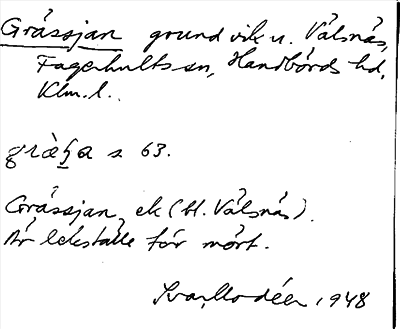 Grássjan grund vik u. Válsnäs,
Fagerhults sn, Handbörds hd,
Klm. l.
s 63.
Grássjan, ek (bl. Válsnäs).
Är lekställe för mört.
Ivar Modéer 1948